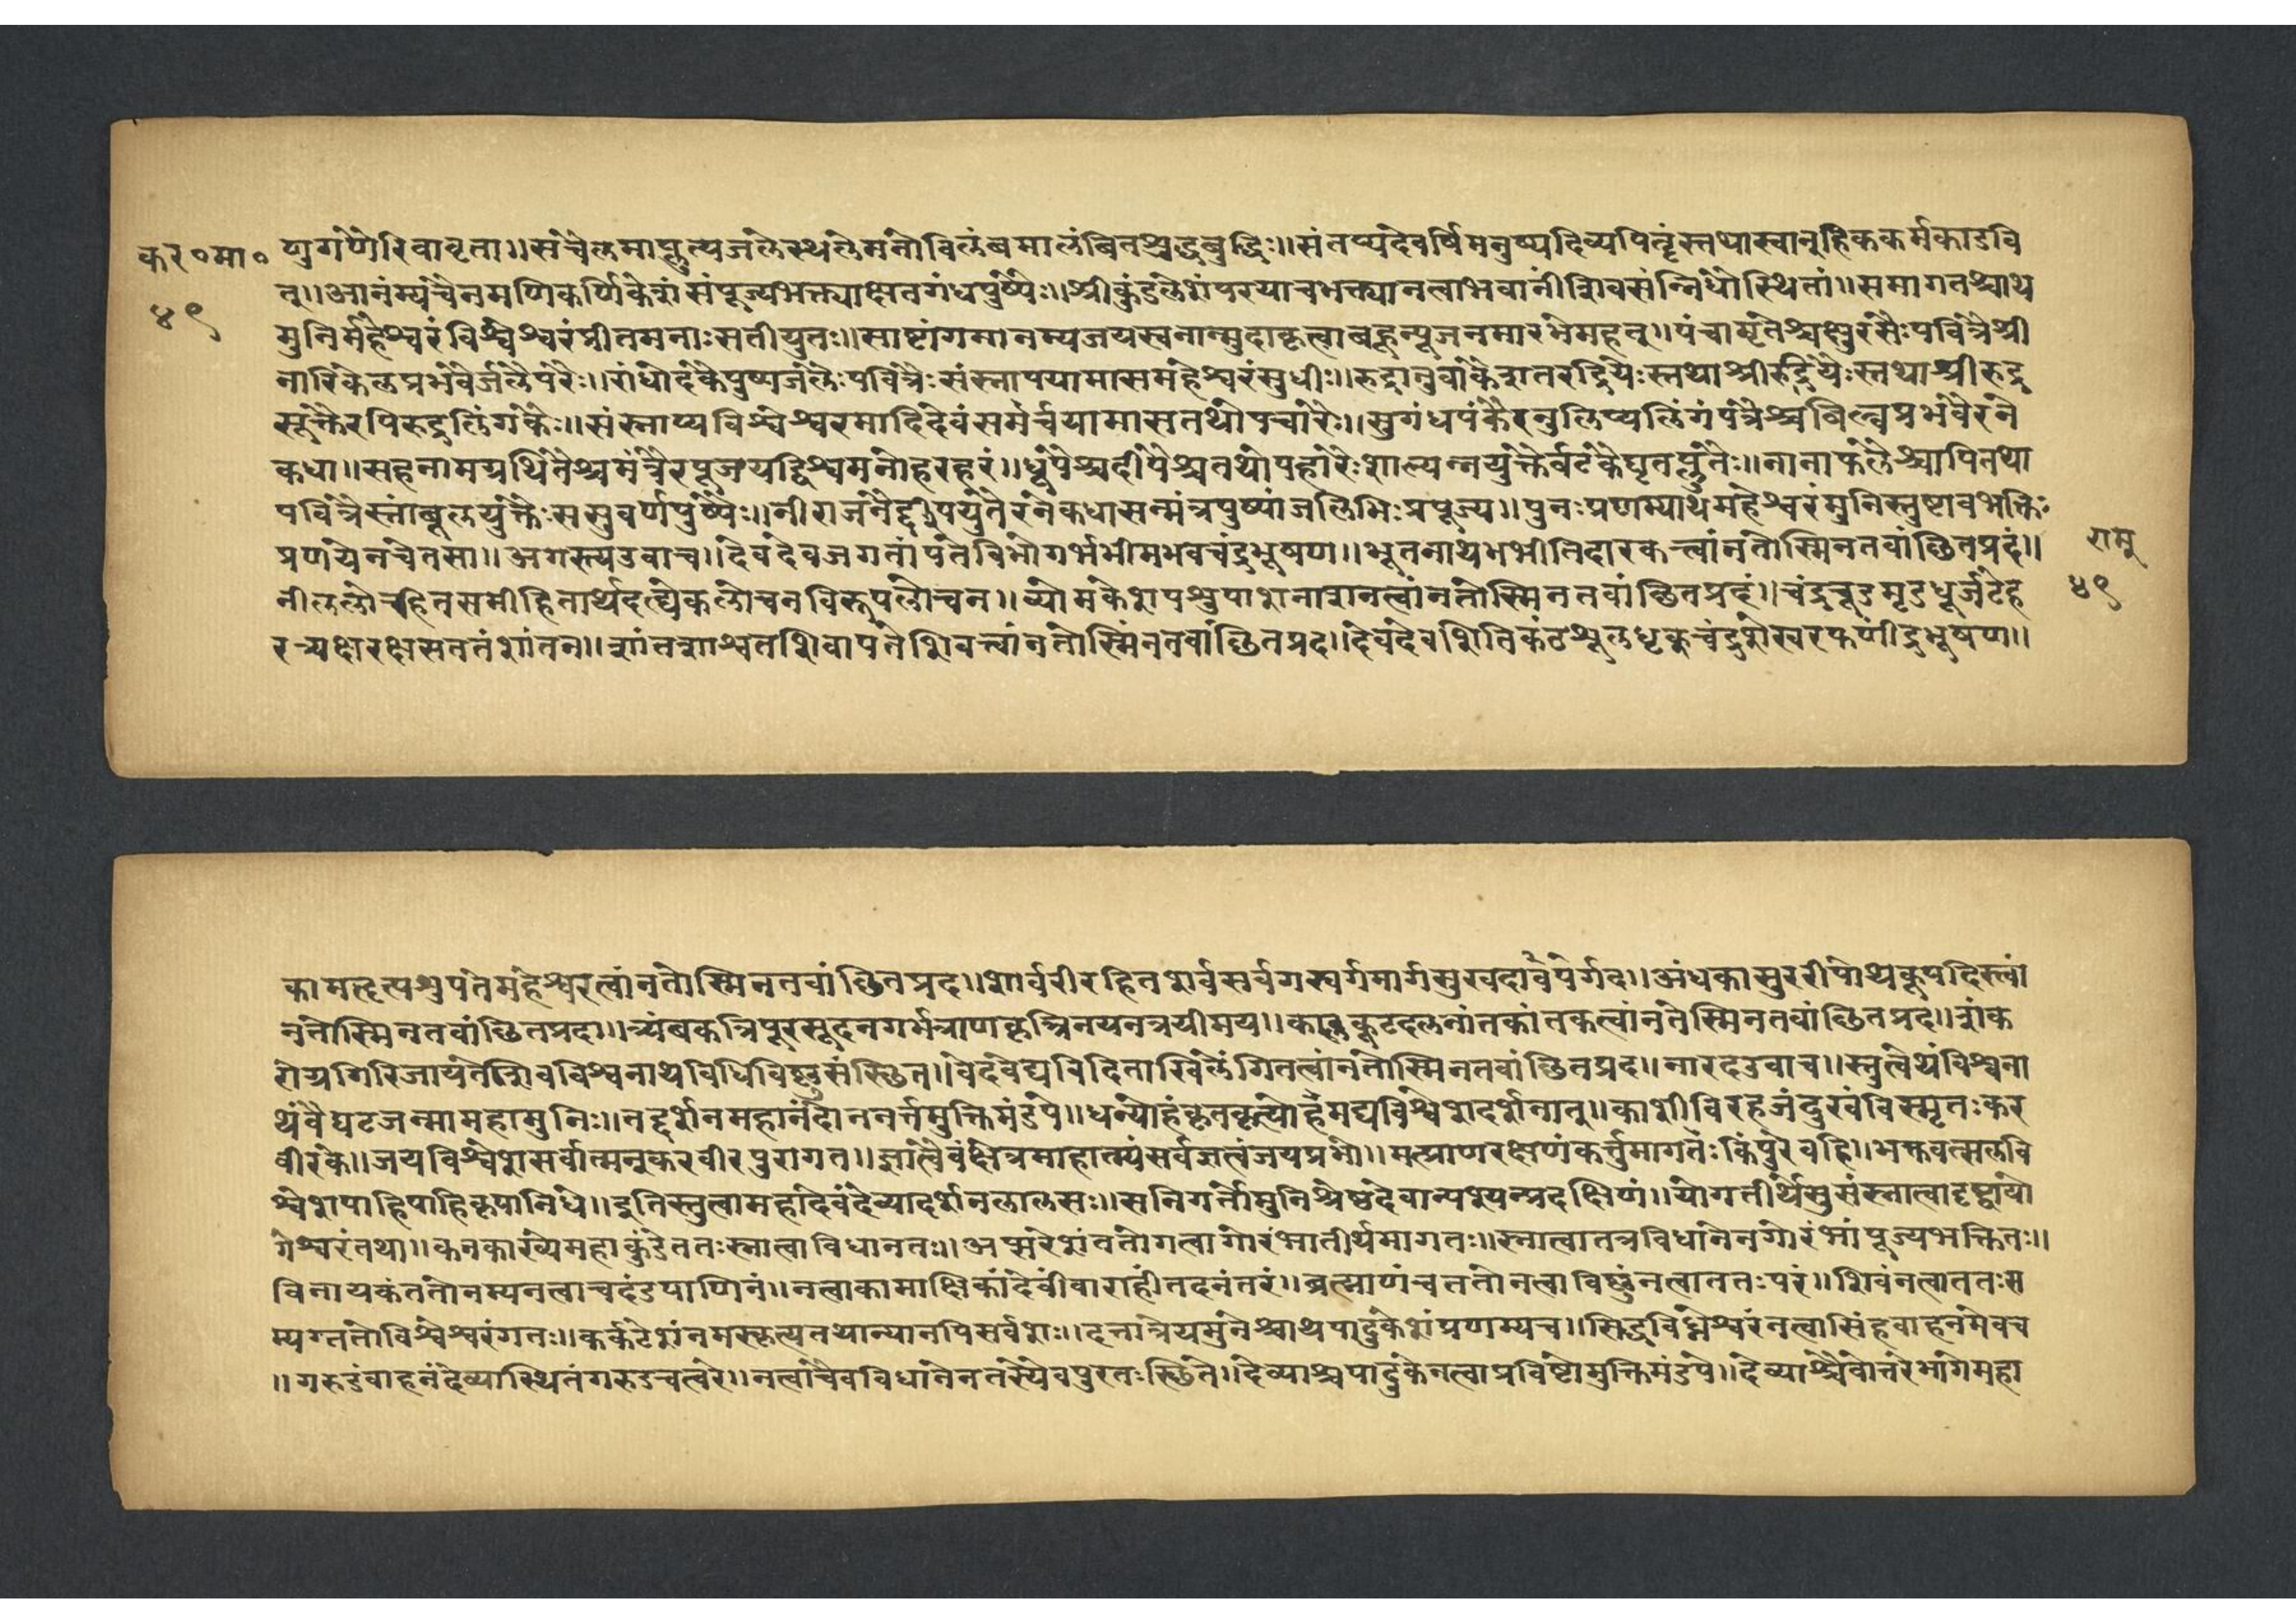 कर॰मा॰
४९
णुगणैरिवावृता॥सचैलमाप्लुत्यजलेस्थलेमनोविलंबमालंबितश्रुद्धबुद्धिः॥संतर्प्यदेवर्षिमनुष्यदिव्यपितॄंस्तथास्वानुहिककर्मकाडवि
त्॥आनंम्यचैनमणिकर्णिकेशंसंपूज्यभक्त्याक्षतगंधपुष्पैः॥श्रीकुंडलेशंपरयाचभक्त्यानत्वाभवानींशिवसंन्निधौस्थितां॥समागतश्चाथ
मुनिर्महेश्वरंविश्वेश्वरंप्रीतमनाःसतीयुतः॥साष्टांगमानम्यजयस्वनान्मुदाकृत्वाबहून्पूजनमारभेमहत्॥पंचामृतैश्चक्षुरसैःपवित्रैश्री
नारिकेलप्रभवैर्जलैपरैः॥गंधोदकैपुष्पजलैःपवित्रैःसंस्नापयामासमहेश्वरंसुधीः॥रुद्रानुवाकेशतरुद्रियैःस्तथाश्रीरुद्रियैःस्तथाश्रीरुद्र
सूक्तैरपिरूद्रलिंगकैः॥संस्नाप्यविश्वेश्वरमादिदेवंसमर्चयामासतथोपचारैः॥सुगंधपंकैरनुलिप्यलिंगंपत्रैश्चबिल्वप्रभवैरने
कधा॥सहनामग्रथितैश्चमंत्रैरपूजयद्विश्वमनोहरहरं॥धूपैश्चदीपैश्चतथोपहारैःशाल्यन्नयुक्तैर्वटकैघृतप्लुतैः॥नानाफलैश्चापितथा
पवित्रैस्तांबूलयुक्तैःससुवर्णपुष्पैः॥नीराजनैर्द्दीपयुतैरनेकधासन्मंत्रपुष्पांजलिभिःप्रपूज्य॥पुनःप्रणम्याथमहेश्वरंमुनिस्तुष्टावभक्तिः
प्रणयेनचेतसा॥अगस्त्यउवाच॥देवदेवजगतांपतेविभोगर्भभीमभवचंद्रभूषण॥भूतनाथभभीतिदारकत्वांनतोस्मिनतवांछितप्रदं॥
नीललोचहितसमीहितार्थदत्ध्येकलोचनविरूपलोचन॥व्योमकेशपशुपाशनाशनत्वांनतोस्मिनतवांछितप्रदं॥चंद्रचूडमृडधूर्जटेह
रत्र्यक्षरक्षसततंशांतन॥शांतशाश्वतशिवापतेशिवत्वांनतोस्मिंनतवांछितप्रद॥देवदेवशितिकंठश्रूलधृक्चंद्रशेखरफणींद्रभूषण॥
रामु
४९
कामतृत्पशुपतेमहेश्वरत्वांनतोस्मिनतवांछितप्रद॥शर्वरीरहितशर्वसर्वगस्वर्गमार्गसुखदावपर्गद॥अंधकासुररीपोथकूपदिस्त्वां
नतोस्मिनतवांछितप्रदा॥त्र्यंबकत्रिपूरसूदनगर्भत्राणकृत्त्रिनयनत्रयीमय॥कालकूटदलनांतकांतकत्वांनतेस्मिनतवांछितप्रद॥शंक
रोग्रगिरिजायतेशिवविश्वनाथविधिविष्णुसंस्छित॥वेदवेद्यविदिताखिलेंगितत्वांनतोस्मिनतवांछितप्रद॥नारदउवाच॥स्तुत्वेथंविश्वना
थंवैघटजन्मामहामुनिः॥नद्दर्शेनमहानंदोननर्त्तमुक्तिमंडपे॥धन्योहंकृतकृत्योहमद्यविश्वेशदर्शनात्॥काशीविरहजंदुखंविस्मृतःकर
वीरके॥जयविश्वेशसर्वात्मन्करवीरपुरागत॥ज्ञात्वैवंक्षेत्रमाहात्म्यंसर्वज्ञत्वंजयप्रभो॥मत्प्राणरक्षणंकर्त्तुमागतःकिंपुरवहि॥भक्तवत्सलवि
श्वेशपाहिपाहिकृपानिधे॥इतिस्तुत्वामहादेवंदेव्यादर्शनलालसः॥सनिगर्तोमुनिश्रेष्ठदेवान्पश्यन्प्रदक्षिणं॥योगतीर्थेसुसंस्नात्वादृष्ट्वायो
गेश्वरंतथा॥कनकाख्येमहाकुंडेततःस्नात्वाविधानतः॥अप्सरेशंवतोगत्वागोरंभातीर्थमागतः॥स्नात्वातत्रविधानेनगोरंभांपूज्यभक्तितः॥
विनायकंततोनम्यनत्वाचदंडपाणिनं॥नत्वाकामाक्षिकांदेवींवाराहींतदनंतरं॥ब्रत्माणंचततोनत्वाविष्णुंनत्वाततःपरं॥शिवंनत्वाततःस
म्यग्ततोविश्वेश्वरंगतः॥कर्कटेशंनमस्कृत्यतथान्यानपिसर्वशः॥दत्तात्रेयमुनेश्चाथपादुकेशंप्रणम्यच॥सिद्धविघ्नेश्वरंनत्वासिंहवाहनमेवच
॥गरुडंवाहनंदेव्यास्थितंगरुडचत्वरे॥नत्वाचैवविधानेनतस्यैवपुरतःस्छिते॥देव्याश्चपादुकेनत्वाप्रविष्टोमुक्तिमंडपे॥देव्याश्चैवोत्तरेभागेमहा